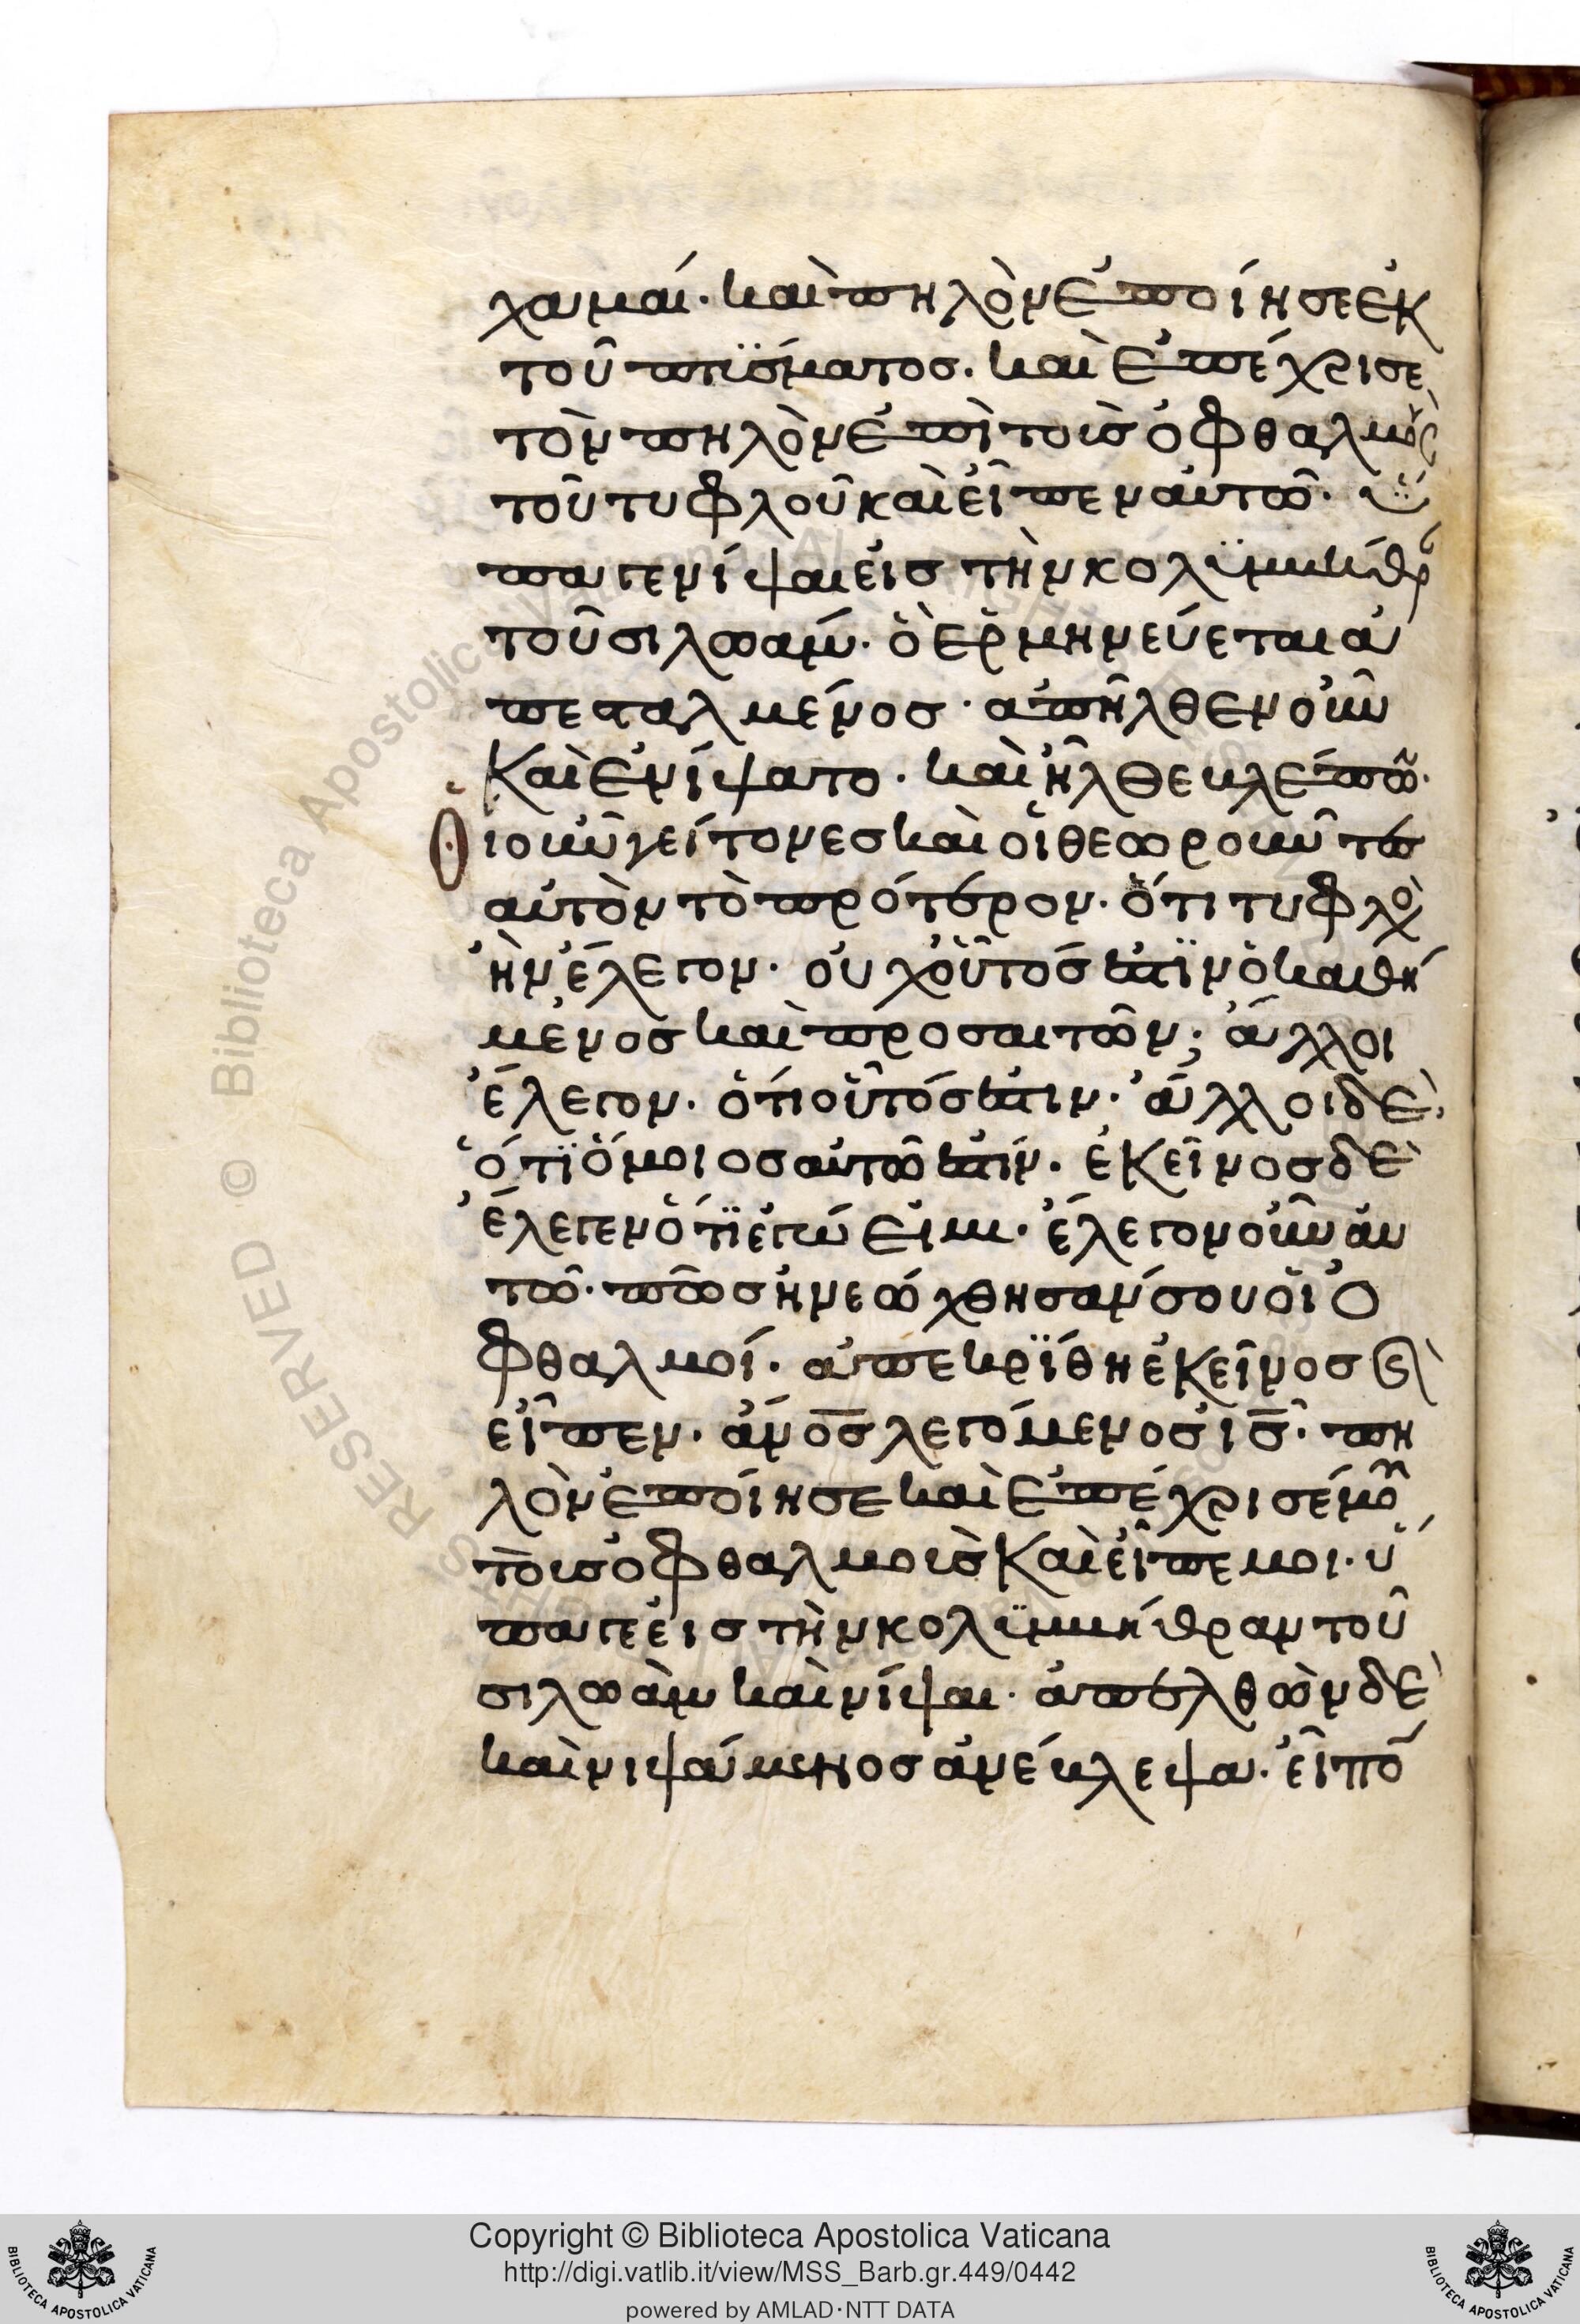 χαμαί· καὶ πηλὸν ἐποίησε ἐκ
τοῦ πτϋσματος. καὶ ἐπέχρισε
τὸν πηλὸν ἐπὶ τοὺς ὀφθαλμοὺς
τοῦ τυφλοῦ καὶ εἶπεν αὐτῶ· ὕ
παγε νίψαι εἰς τὴν κολϋμβήθρ
τοῦ σιλωάμ· ὃ ἑρμηνεύεται ἀ
πεσταλμένος· ἀπῆλθεν οὖν
καὶ ἐνίψατο· καὶ ἦλθε βλέπω·
Ὁι οὖν γείτονες καὶ οἱ θεωροῦντες
αὐτὸν τὸ πρότερον· ὅτι τυφλὸ
ἦν ἔλεγον· οὐχ οὗτός ἐστϊν ὁ καθή
μενος καὶ προσαιτῶν; ἄλλοι
ἔλεγον· ὅτι οὗτός ἐστιν· ἄλλοι δὲ·
ὅτϊ ὅμοιος αὐτῶ ἐστίν· ἐκεῖνος δὲ
ἔλεγεν ὅτϊ ἐγώ εἰμι· ἔλεγον οὖν αὐ
τῶ· πῶς ἠνεώχθησάν σου οἱ ὀ
φθαλμοί· ἀπεκρϊθη ἐκεῖνος ϗ
εἶπεν· ἄνος λεγόμενος ις· πη
λὸν ἐποίησε καὶ ἐπέχρισέ μου
τοὺς ὀφθαλμοὺς καὶ εἶπε μοι· ὕ
παγε εἰς τὴν κολϋμβήθραν τοῦ
σιλωὰμ καὶ νίψαι· ἀπελθὼν δὲ
καὶ νιψάμενος ἀνέβλεψα· εἶπο
Copyright © Biblioteca Apostolica Vaticana
http://digi.vatlib.it/view/MSS_Barb.gr.449/0442
powered by AMLAD·NTT DATA